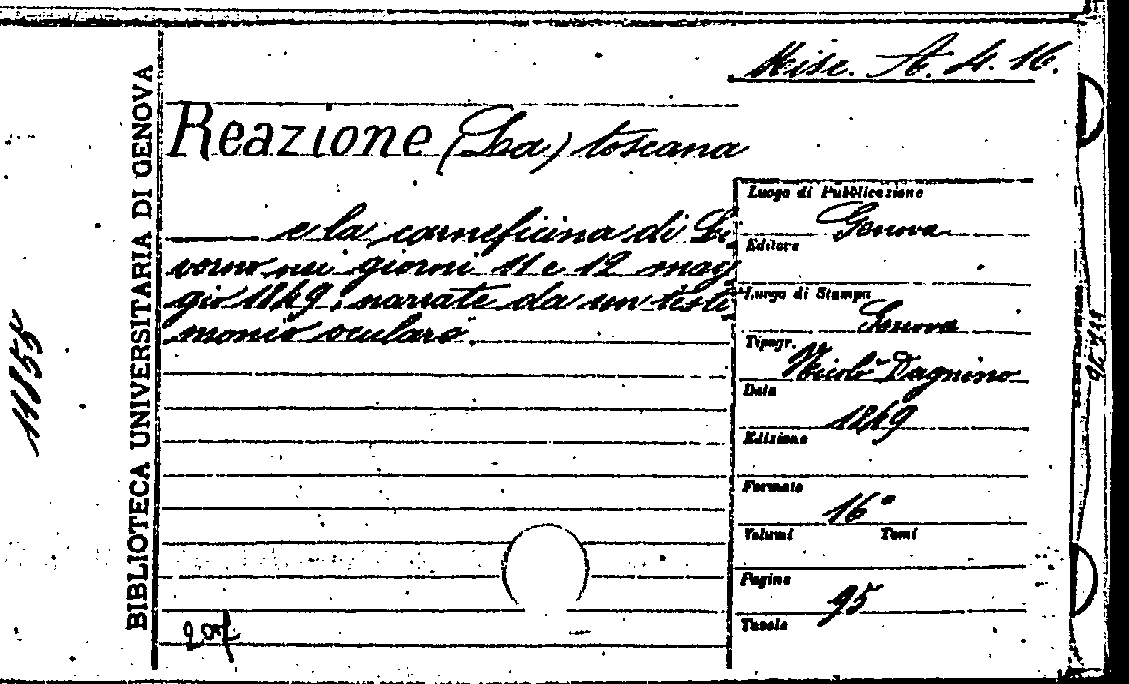 Misc. A. 4. 16.
Reazione (La) toscana
e la carneficina di Li
vorno nei giorni 11 e 12 mag
gio 1849, narrate da un testi
monio oculare.
Luogo di Pubblicazione
Genova
Editore
Luogo di Stampa
Genova
Tipogr.
Nicolò Dagnino
Data
1849
Edizione
Formato
16°
Volumi Tomi
Pagine
95
Tavole
BIBLIOTECA UNIVERSITARIA DI GENOVA
11855